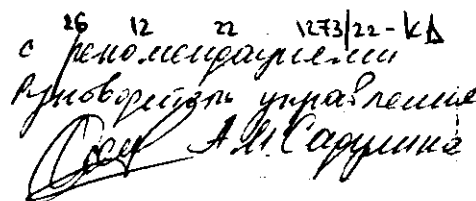 26 12 22 1273/22-КД
с рекомендациями
Руководитель управления
А.М. Садулина